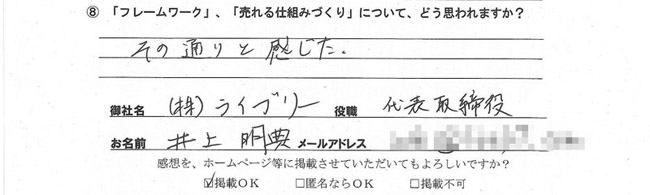 ⑧ 「フレームワーク」、「売れる仕組みづくり」について、どう思われますか？
その通りと感じた.
御社名 (株) ライブリー 役職 代表取締役
お名前 井上 明典 メールアドレス
感想を、ホームページ等に掲載させていただいてもよろしいですか？
☑掲載ＯＫ □匿名ならＯＫ □掲載不可